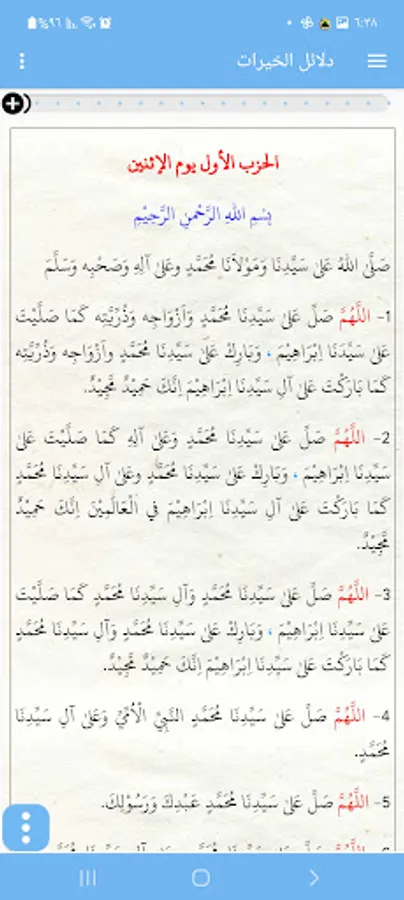 ٦:٣٨
%٩٦
دلائل الخيرات
الحزب الأول يوم الإثنين
بِسْمِ اللهِ الرَّحْمنِ الرَّحِيْمِ
صَلَّى اللهُ عَلىٰ سَيِّدِنَا وَمَوْلَانَا مُحَمَّدٍ وعَلىٰ آلِهِ وَصَحْبِهِ وَسَلَّمَ
1- اَللّهُمَّ صَلِّ عَلىٰ سَيِّدِنَا مُحَمَّدٍ وَاَزْوَاجِهِ وَذُرِّيَّتِهِ كَمَا صَلَّيْتَ
عَلىٰ سَيِّدَنَا اِبْرَاهِيْمَ ، وَبَارِكْ عَلىٰ سَيِّدِنَا مُحَمَّدٍ وأَزْوَاجِهِ وَذُرِّيَّتِهِ
كَمَا بَارَكْتَ عَلىٰ آلِ سَيِّدِنَا اِبْرَاهِيْمَ اِنَّكَ حَمِيْدٌ مَّجِيْدٌ.
2- اَللّهُمَّ صَلِّ عَلىٰ سَيِّدِنَا مُحَمَّدٍ وَعَلىٰ آلِهِ كَمَا صَلَّيْتَ عَلىٰ
سَيِّدِنَا اِبْرَاهِيْمَ ، وَبَارِكْ عَلىٰ سَيِّدِنَا مُحَمَّدٍ وعَلىٰ آلِ سَيِّدِنَا مُحَمَّدٍ
كَمَا بَارَكْتَ عَلىٰ آلِ سَيِّدِنَا اِبْرَاهِيْمَ فِي الْعَالَمِيْنَ اِنَّكَ حَمِيْدٌ
مَّجِيْدٌ.
3- اَللّهُمَّ صَلِّ عَلىٰ سَيِّدِنَا مُحَمَّدٍ وَآلِ سَيِّدِنَا مُحَمَّدٍ كَمَا صَلَّيْتَ
عَلىٰ سَيِّدِنَا اِبْرَاهِيْمَ ، وَبَارِكْ عَلىٰ سَيِّدِنَا مُحَمَّدٍ وَآلِ سَيِّدِنَا مُحَمَّدٍ
كَمَا بَارَكْتَ عَلىٰ سَيِّدِنَا اِبْرَاهِيْمَ اِنَّكَ حَمِيْدٌ مَّجِيْدٌ.
4- اَللّهُمَّ صَلِّ عَلىٰ سَيِّدِنَا مُحَمَّدٍ النَّبِيِّ الْأُمِّيِّ وَعَلىٰ آلِ سَيِّدِنَا
مُحَمَّدٍ.
5- اَللّهُمَّ صَلِّ عَلىٰ سَيِّدِنَا مُحَمَّدٍ عَبْدِكَ وَرَسُوْلِكَ.